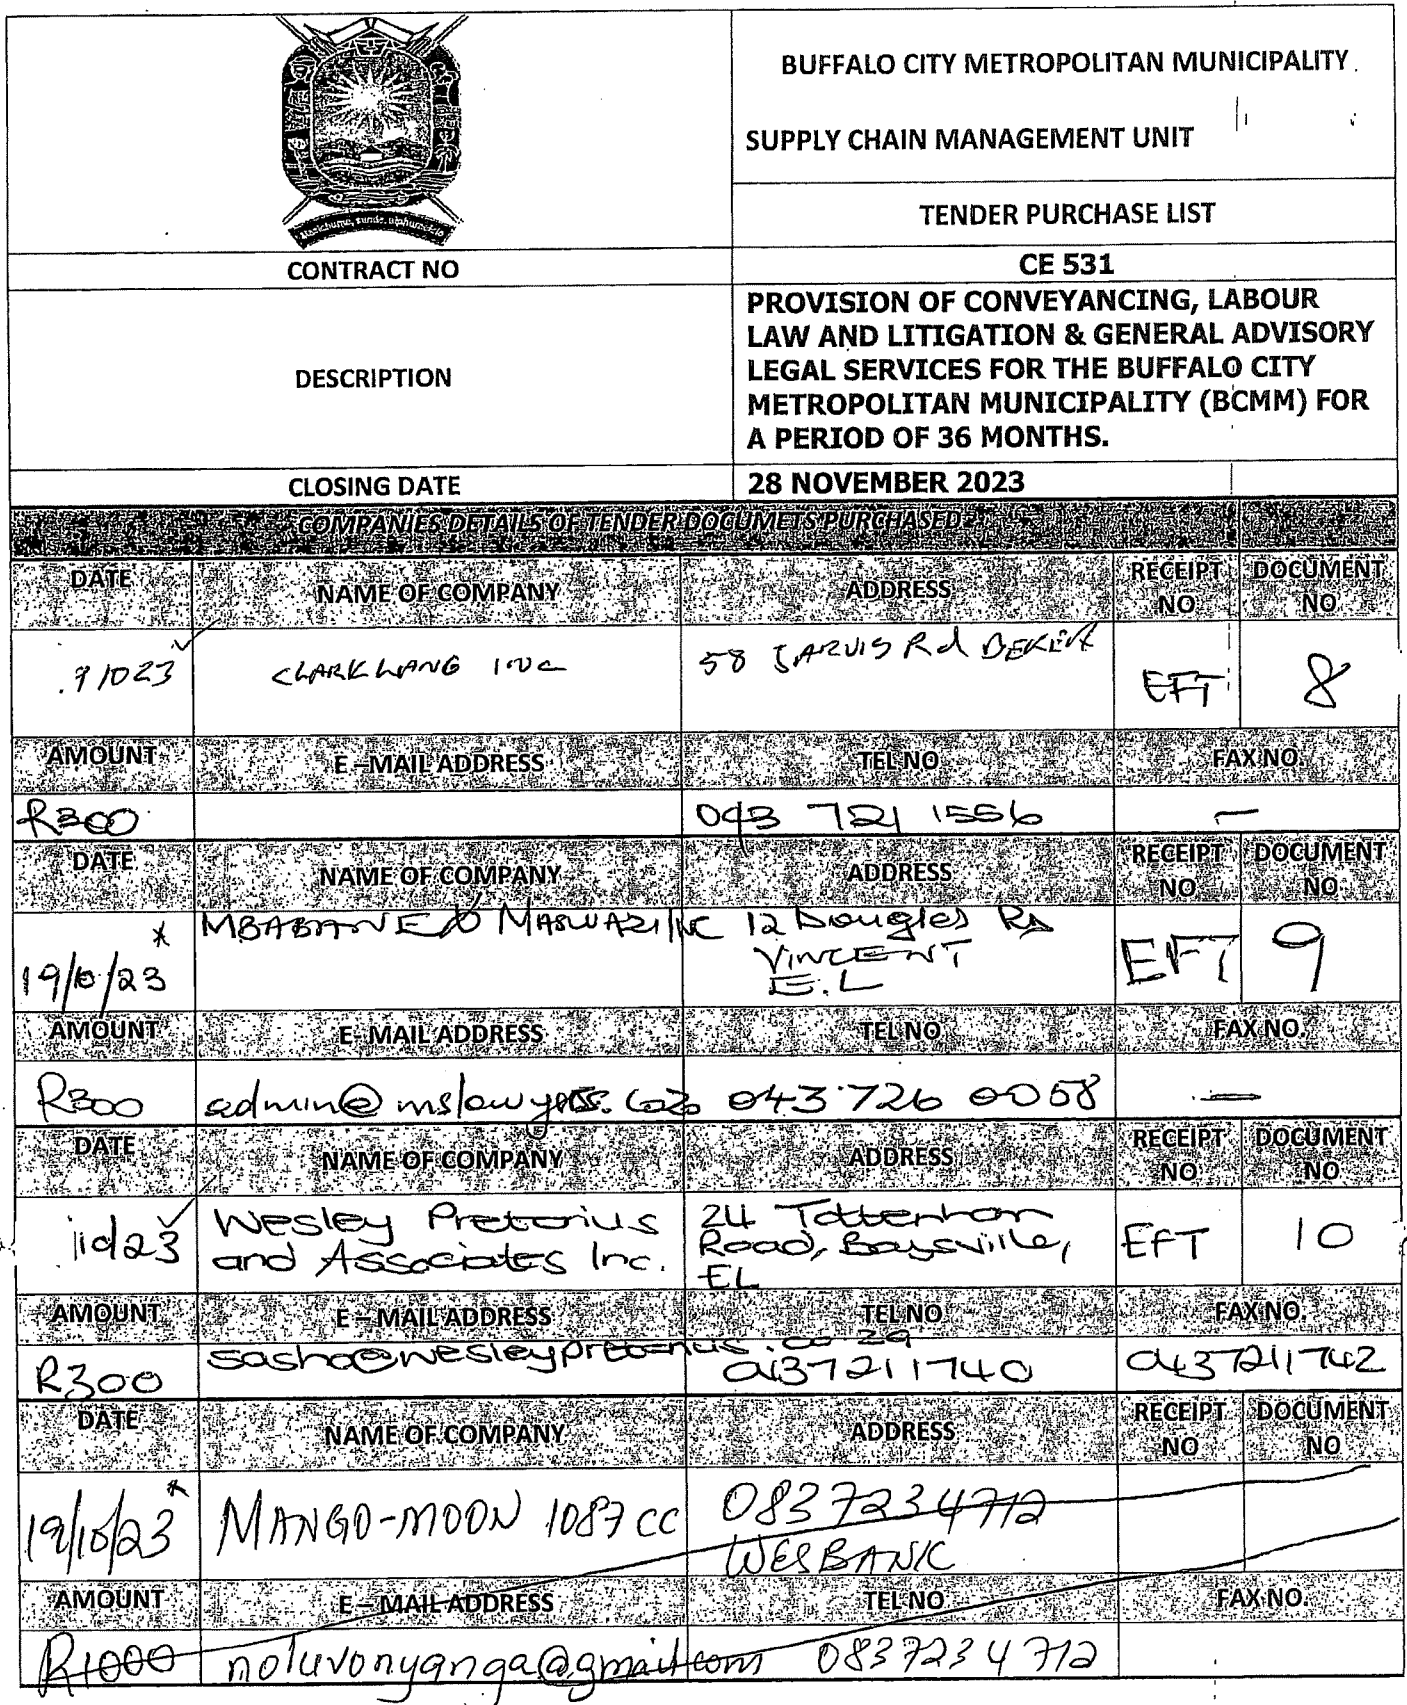 BUFFALO CITY METROPOLITAN MUNICIPALITY
SUPPLY CHAIN MANAGEMENT UNIT
TENDER PURCHASE LIST
CONTRACT NO
CE 531
DESCRIPTION
PROVISION OF CONVEYANCING, LABOUR
LAW AND LITIGATION & GENERAL ADVISORY
LEGAL SERVICES FOR THE BUFFALO CITY
METROPOLITAN MUNICIPALITY (BCMM) FOR
A PERIOD OF 36 MONTHS.
CLOSING DATE
28 NOVEMBER 2023
COMPANIES DETAILS OF TENDER DOCUMETS PURCHASED
DATE NAME OF COMPANY ADDRESS RECEIPT NO DOCUMENT NO
91023 CLARK LANG INC 58 JARVIS Rd BEREA EFT 8
AMOUNT E – MAIL ADDRESS TEL NO FAX NO.
R300 043 721 1556 –
DATE NAME OF COMPANY ADDRESS RECEIPT NO DOCUMENT NO
19/10/23 * MBABANE & MASWAZI INC 12 Douglas Rd
VINCENT
E.L
EFT 9
AMOUNT E- MAIL ADDRESS TEL NO FAX NO.
R300 admin@mslawyers.co 043 726 0058 –
DATE NAME OF COMPANY ADDRESS RECEIPT NO DOCUMENT NO
Wesley Pretorius 24 Tottenham
and Associates Inc. Road, Baysville,
EL
EFT 10
AMOUNT E – MAIL ADDRESS TEL NO FAX NO.
sasha@wesleypretorius.co.za
R300 0437211740 0437211742
DATE NAME OF COMPANY ADDRESS RECEIPT NO DOCUMENT NO
19/10/23 * MANGO-MOON 1087 CC 0837234712
WESBANK
AMOUNT E – MAIL ADDRESS TEL NO FAX NO.
R1000 noluvonyanga@gmail.com 0837234712